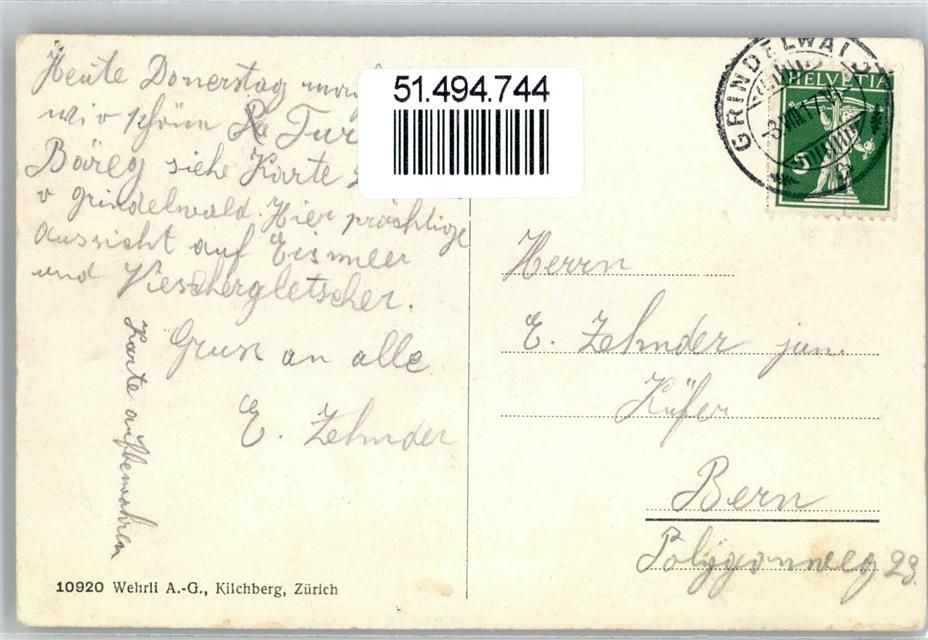 Heute Donerstag
wir v schön Tur
Bäreg siehe Karte
v Grindelwald. Hier prächtige
Aussicht auf Eismeer
und Viescherglетscher.
Gruss an alle
E. Zehnder
Karte aufbewahren
10920 Wehrli A.-G., Kilchberg, Zürich
51.494.744
GRINDELWALD
HELVETIA
5
Herrn
E. Zehnder jun.
Küfer
Bern
Polygonweg 23.